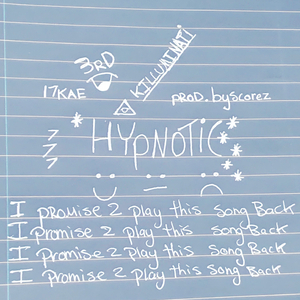 3RD
KILLUMINATI
17KAE
PROD. byscorez
777
HYPNOTIC
I PROMISE 2 Play this Song Back
I Promise 2 Play this Song Back
I Promise 2 Play this Song Back
I Promise 2 Play this Song Back